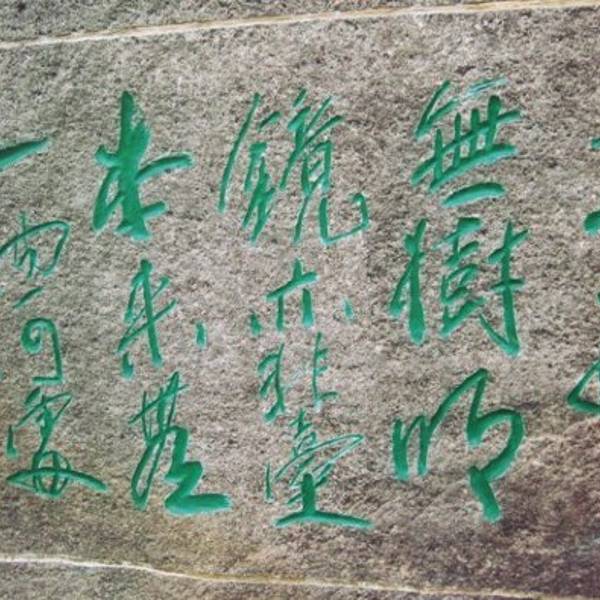 無樹明
鏡亦非臺
本來無
一物何處